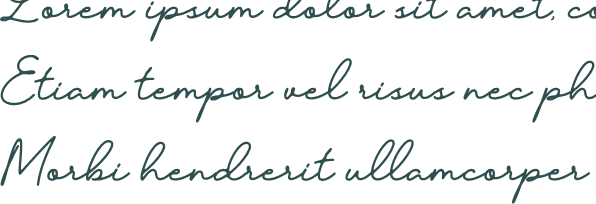 Lorem ipsum dolor sit amet, co
Etiam tempor vel risus nec ph
Morbi hendrerit ullamcorper